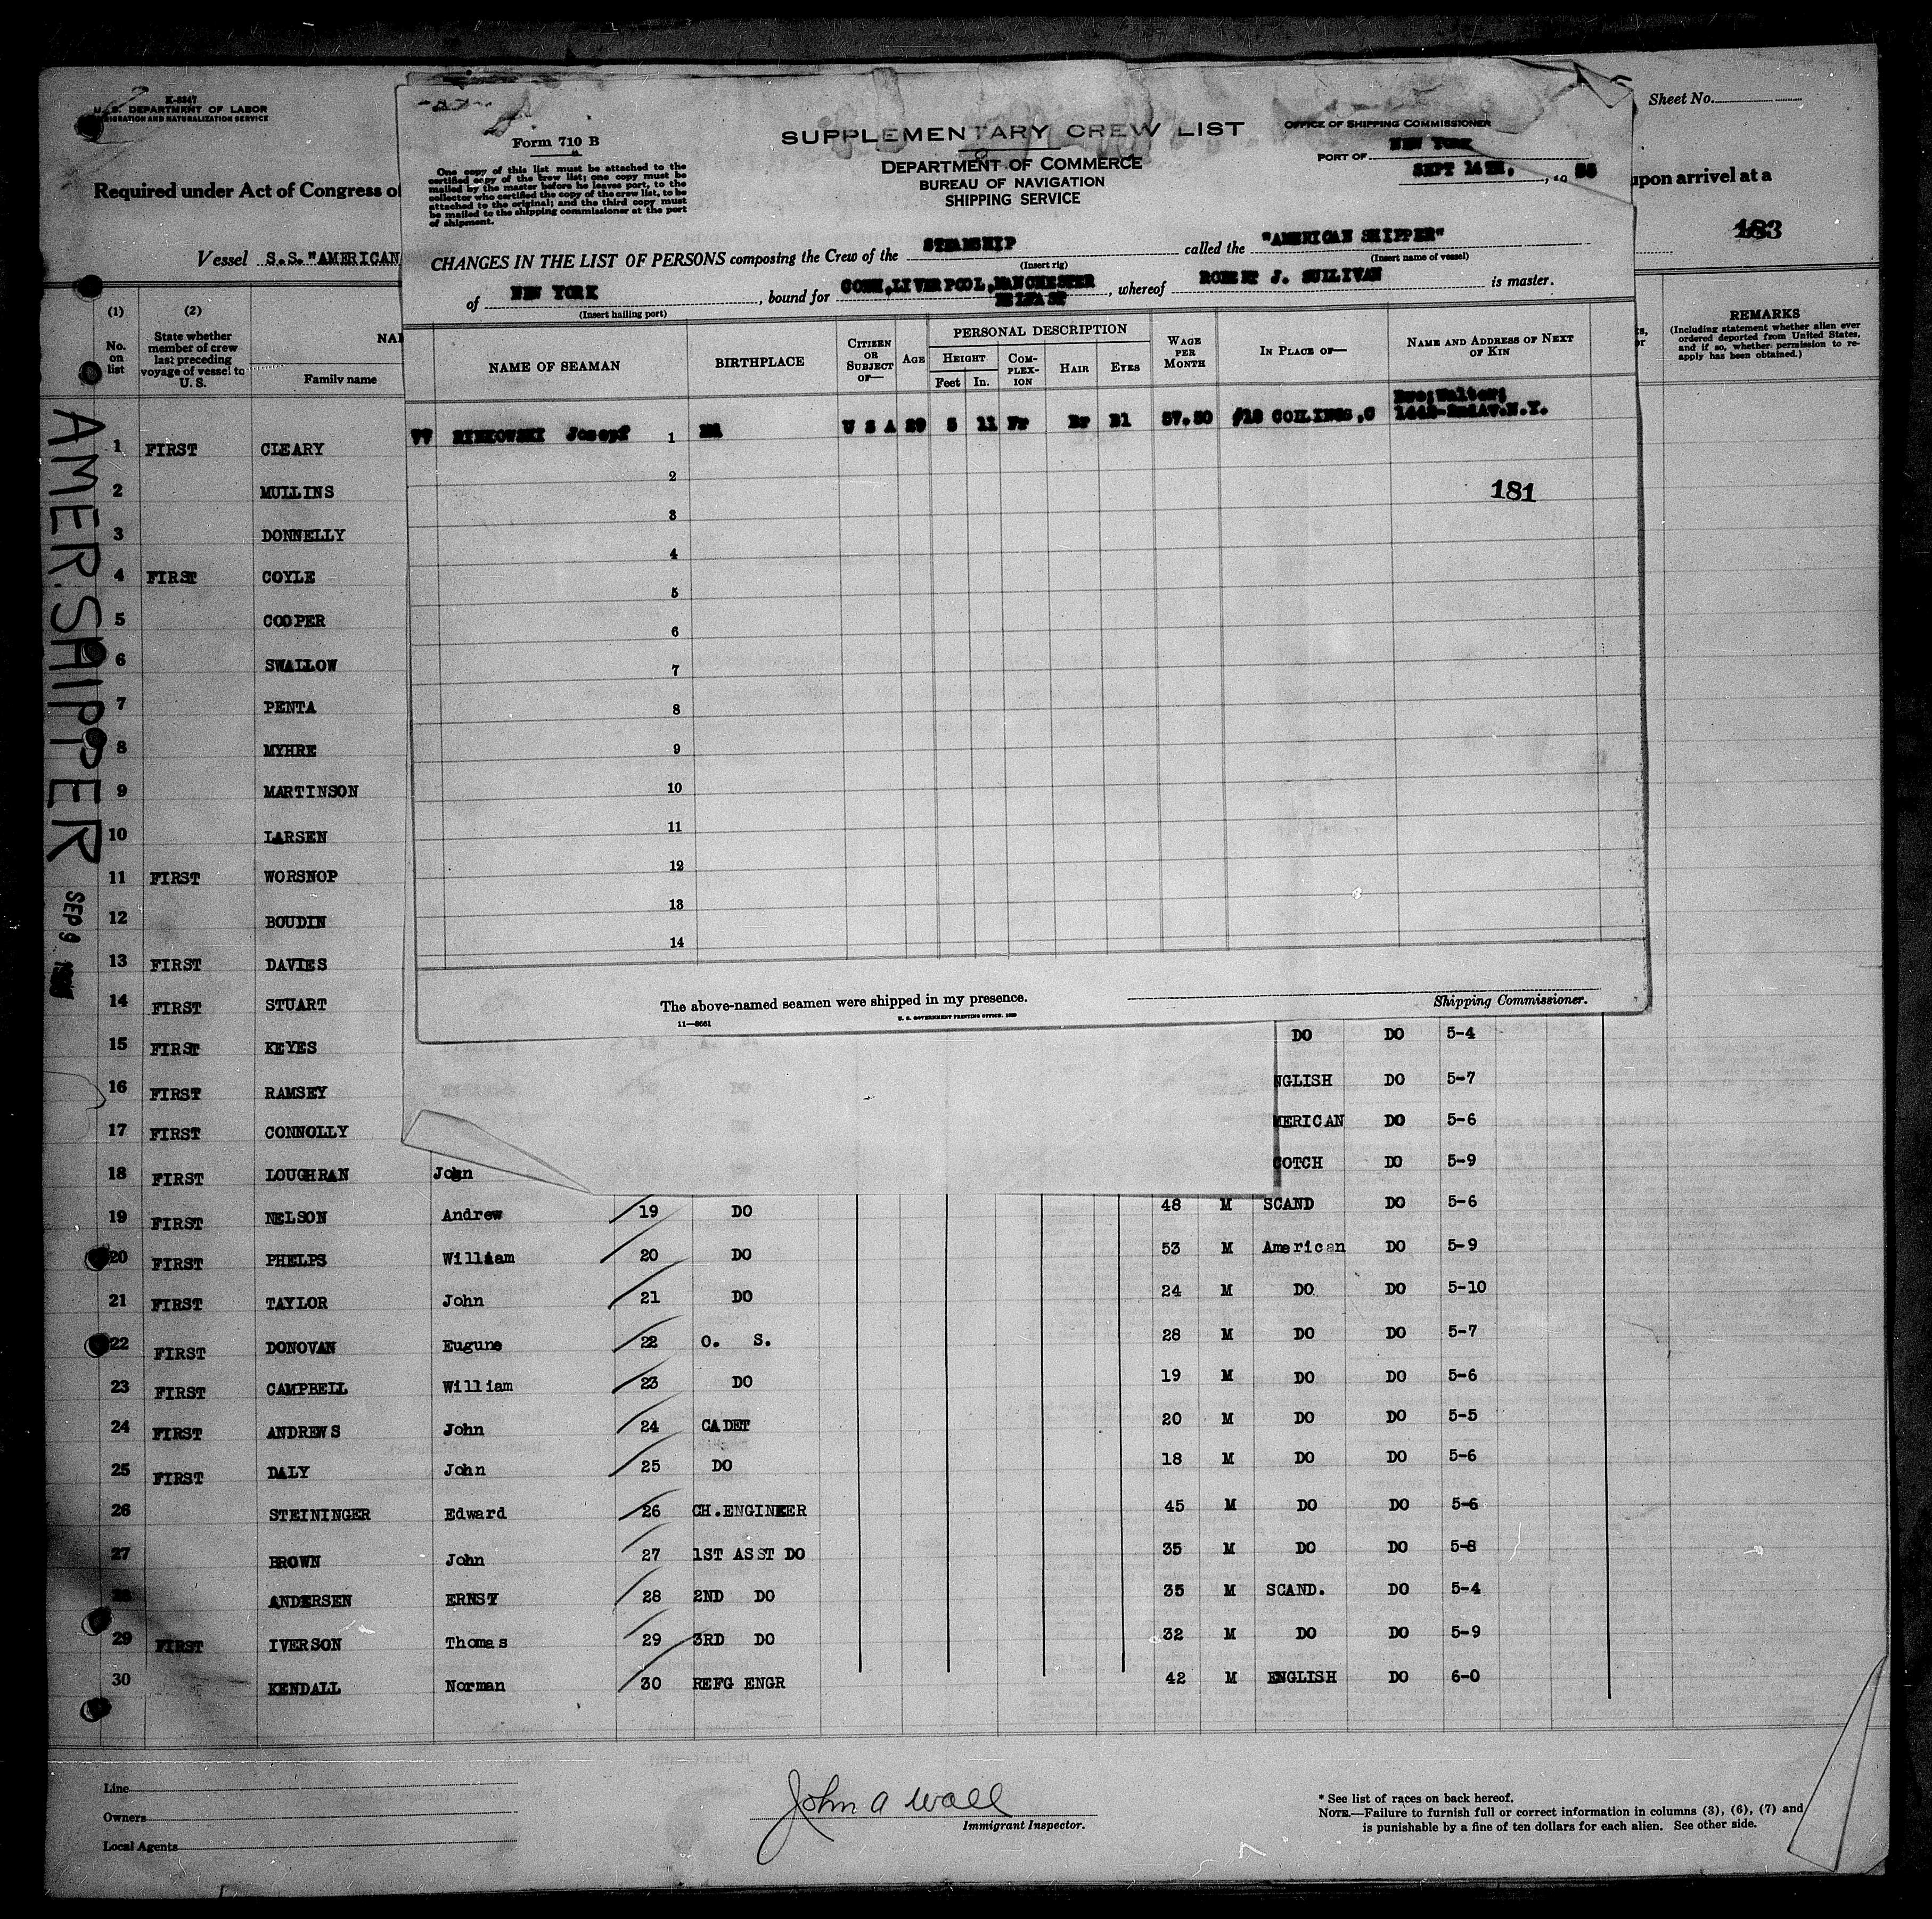 K-5547
U. S. DEPARTMENT OF LABOR
IMMIGRATION AND NATURALIZATION SERVICE
Required under Act of Congress of
Vessel S.S. "AMERICAN
Sheet No.
upon arrival at a
183
Form 710 B
One copy of this list must be attached to the
certified copy of the crew list; one copy must be
mailed by the master before he leaves port, to the
collector who certified the copy of the crew list, to be
attached to the original; and the third copy must
be mailed to the shipping commissioner at the port
of shipment.
SUPPLEMENTARY CREW LIST
DEPARTMENT OF COMMERCE
BUREAU OF NAVIGATION
SHIPPING SERVICE
OFFICE OF SHIPPING COMMISSIONER
PORT OF NEW YORK
SEPT 14TH,
CHANGES IN THE LIST OF PERSONS composing the Crew of the STEAMSHIP called the "AMERICAN SHIPPER"
(Insert rig) (Insert name of vessel)
of NEW YORK, bound for COBH, LIVERPOOL, MANCHESTER BELFAST, whereof ROBERT J. SULLIVAN is master.
(Insert hailing port)
NAME OF SEAMAN BIRTHPLACE CITIZEN OR SUBJECT OF— AGE PERSONAL DESCRIPTION HEIGHT Feet In. COMPLEXION HAIR EYES WAGE PER MONTH IN PLACE OF— NAME AND ADDRESS OF NEXT OF KIN
77 Joseph 1 U S A 29 5 11 Fr Br Bl 57.50 #18 COLLINGS,C Bro;Walter; 1442-2ndAv.N.Y.
2
181
3
4
5
6
7
8
9
10
11
12
13
14
The above-named seamen were shipped in my presence.
Shipping Commissioner.
11—8661
U. S. GOVERNMENT PRINTING OFFICE
(1) No. on list
(2) State whether member of crew last preceding voyage of vessel to U. S.
NA
Family name
REMARKS
(Including statement whether alien ever ordered deported from United States, and if so, whether permission to reapply has been obtained.)
AMER. SHIPPER
SEP 9
1 FIRST CLEARY
2 MULLINS
3 DONNELLY
4 FIRST COYLE
5 COOPER
6 SWALLOW
7 PENTA
8 MYHRE
9 MARTINSON
10 LARSEN
11 FIRST WORSNOP
12 BOUDIN
13 FIRST DAVIES
14 FIRST STUART
15 FIRST KEYES DO DO 5-4
16 FIRST RAMSEY NGLISH DO 5-7
17 FIRST CONNOLLY MERICAN DO 5-6
18 FIRST LOUGHRAN John COTCH DO 5-9
19 FIRST NELSON Andrew 19 DO 48 M SCAND DO 5-6
20 FIRST PHELPS William 20 DO 53 M American DO 5-9
21 FIRST TAYLOR John 21 DO 24 M DO DO 5-10
22 FIRST DONOVAN Eugune 22 O. S. 28 M DO DO 5-7
23 FIRST CAMPBELL William 23 DO 19 M DO DO 5-6
24 FIRST ANDREWS John 24 CADET 20 M DO DO 5-5
25 FIRST DALY John 25 DO 18 M DO DO 5-6
26 STEININGER Edward 26 CH.ENGINEER 45 M DO DO 5-6
27 BROWN John 27 1ST ASST DO 35 M DO DO 5-8
28 ANDERSEN ERNST 28 2ND DO 35 M SCAND. DO 5-4
29 FIRST IVERSON Thomas 29 3RD DO 32 M DO DO 5-9
30 KENDALL Norman 30 REFG ENGR 42 M ENGLISH DO 6-0
Line
Owners
Local Agents
John A Wall
Immigrant Inspector.
* See list of races on back hereof.
NOTE.—Failure to furnish full or correct information in columns (3), (6), (7) and
is punishable by a fine of ten dollars for each alien. See other side.